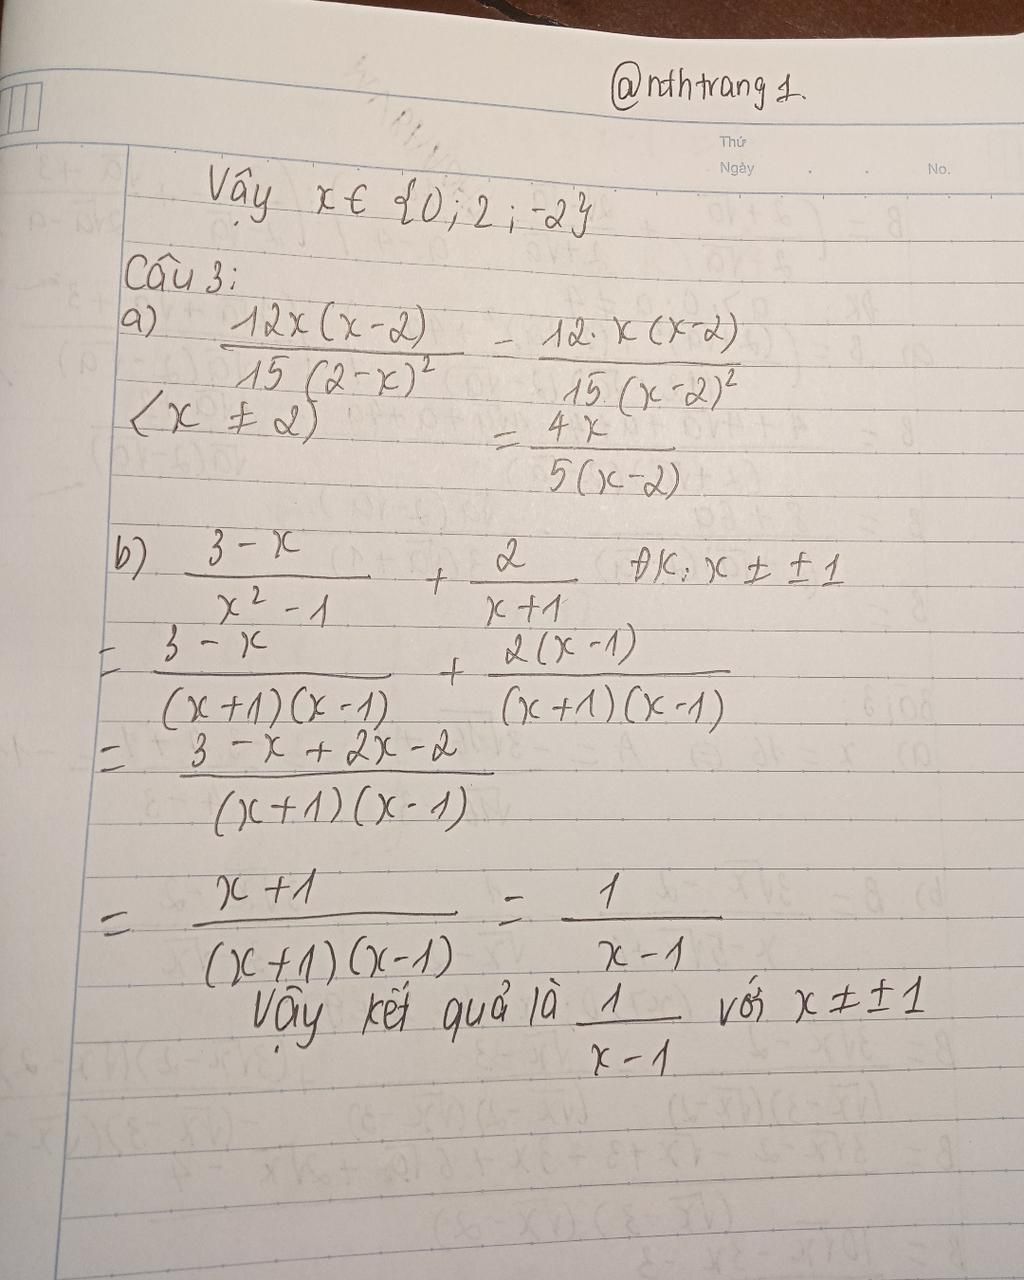 @nthtrang1.
Thứ
Ngày . . No.
Vậy x ∈ {0; 2; -2}
Câu 3:
a) 12x(x-2) / 15(2-x)² = 12.x(x-2) / 15.(x-2)²
(x ≠ 2) = 4x / 5(x-2)
b) 3-x / x²-1 + 2 / x+1 ĐK: x ≠ ±1
= 3-x / (x+1)(x-1) + 2(x-1) / (x+1)(x-1)
= 3-x+2x-2 / (x+1)(x-1)
= x+1 / (x+1)(x-1) = 1 / x-1
Vậy kết quả là 1 / x-1 với x ≠ ±1